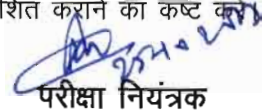 शित कराने का कष्ट करें
परीक्षा नियंत्रक